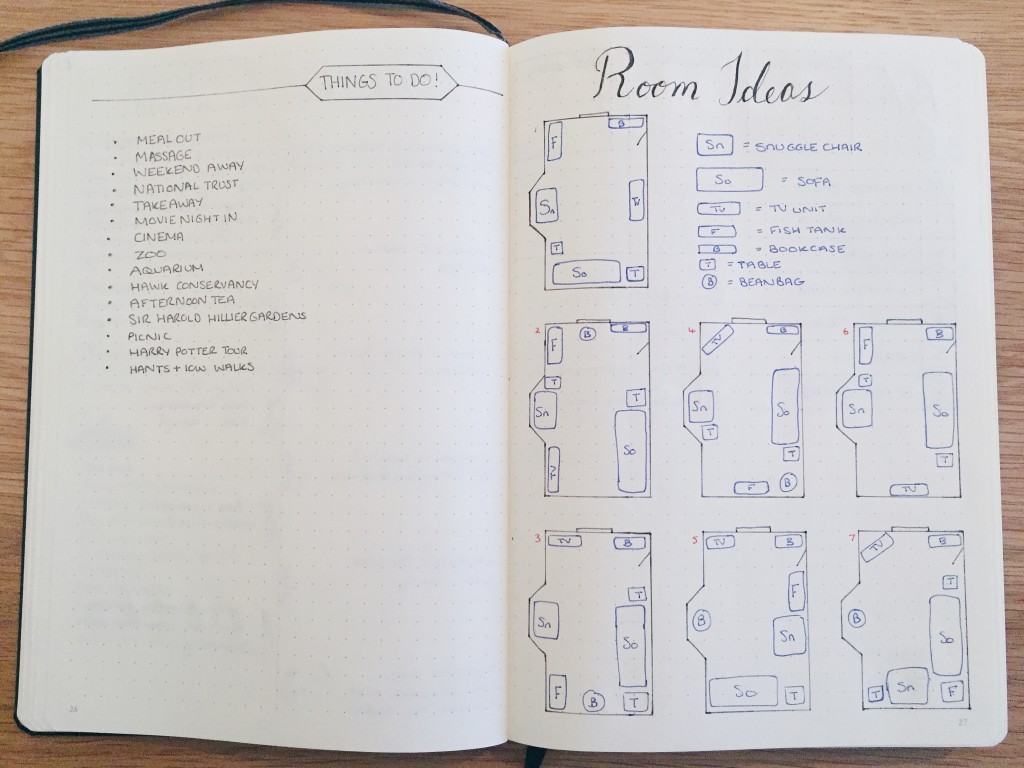 THINGS TO DO!
• MEAL OUT
• MASSAGE
• WEEKEND AWAY
• NATIONAL TRUST
• TAKEAWAY
• MOVIE NIGHT IN
• CINEMA
• ZOO
• AQUARIUM
• HAWK CONSERVANCY
• AFTERNOON TEA
• SIR HAROLD HILLIER GARDENS
• PICNIC
• HARRY POTTER TOUR
• HANTS + IOW WALKS
26
Room Ideas
Sn = SNUGGLE CHAIR
So = SOFA
TV = TV UNIT
F = FISH TANK
B = BOOKCASE
T = TABLE
B = BEANBAG
1
B
F
Sn
TV
T
So
T
2
B
B
F
T
Sn
T
So
TV
4
TV
B
Sn
So
T
T
F
B
6
F
B
T
Sn
So
T
TV
3
TV
B
T
Sn
So
F
B
T
5
TV
B
F
B
Sn
So
T
7
TV
B
T
B
So
Sn
T
F
27